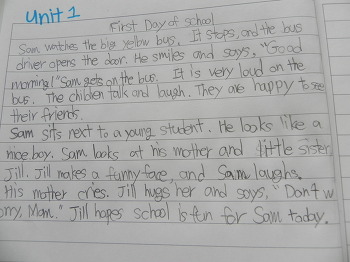 Unit 1
First Day of school
Sam watches the big yellow bus. It stops, and the bus
driver opens the door. He smiles and says, "Good
morning!" Sam gets on the bus. It is very loud on the
bus. The children talk and laugh. They are happy to see
their friends.
Sam sits next to a young student. He looks like a
nice boy. Sam looks at his mother and little sister
Jill. Jill makes a funny face, and Sam laughs.
His mother cries. Jill hugs her and says, "Don't w
orry, Mom." Jill hopes school is fun for Sam today.